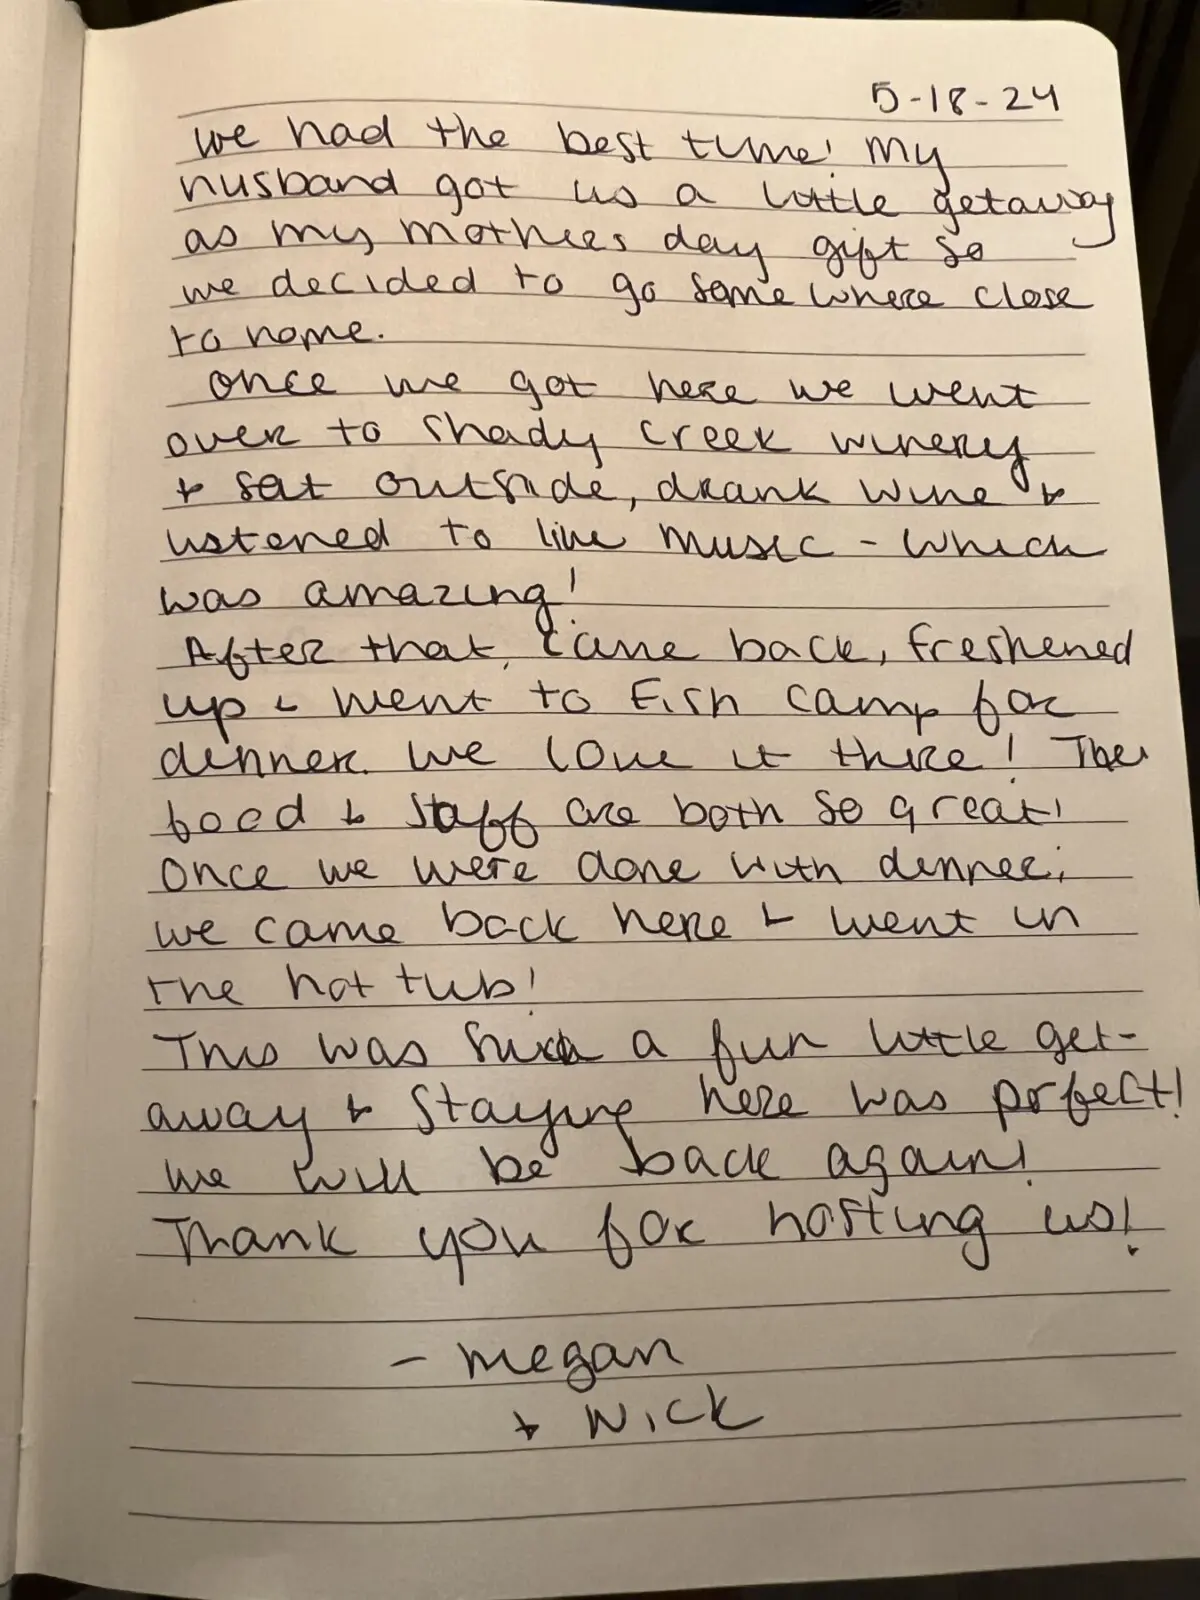 5-18-24
we had the best time! My
husband got us a little getaway
as my mothers day gift so
we decided to go somewhere close
to home.
Once we got here we went
over to Shady Creek winery
+ sat outside, drank wine +
listened to live music - which
was amazing!
After that, came back, freshened
up + went to Fish Camp for
dinner. We love it there! The
food + staff are both so great!
Once we were done with dinner,
we came back here + went in
the hot tub!
This was such a fun little get-
away + staying here was prfect!
We will be back again!
Thank you for hosting us!
- Megan
+ Nick